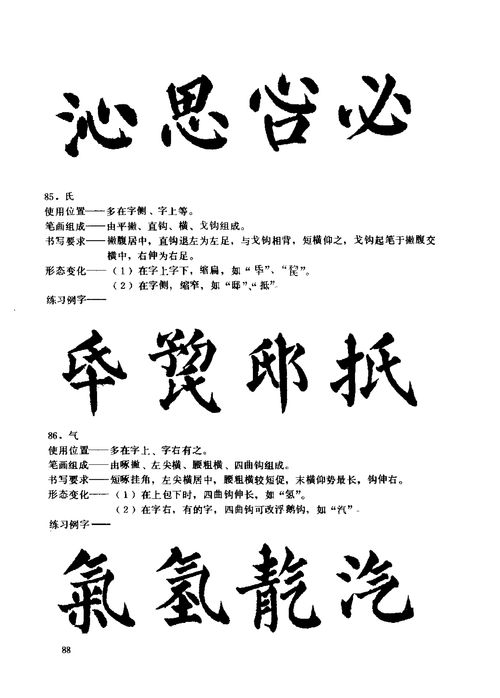 沁思必
85．氏
使用位置——多在字侧、字上等。
笔画组成——由平撇、直钩、横、戈钩组成。
书写要求——撇腹居中，直钩退左为左足，与戈钩相背，短横仰之，戈钩起笔于撇腹交
横中，右伸为右足。
形态变化——（1）在字上字下，缩扁，如“氒”、“”。
（2）在字侧，缩窄，如“邸”、“抵”。
练习例字——
氒邸抵
86．气
使用位置——多在字上、字右有之。
笔画组成——由啄撇、左尖横、腰粗横、四曲钩组成。
书写要求——短啄挂角，左尖横居中，腰粗横较短促，末横仰势最长，钩伸右。
形态变化——（1）在上包下时，四曲钩伸长，如“氢”。
（2）在字右，有的字，四曲钩可改浮鹅钩，如“汽”。
练习例字——
氣氢汽
88